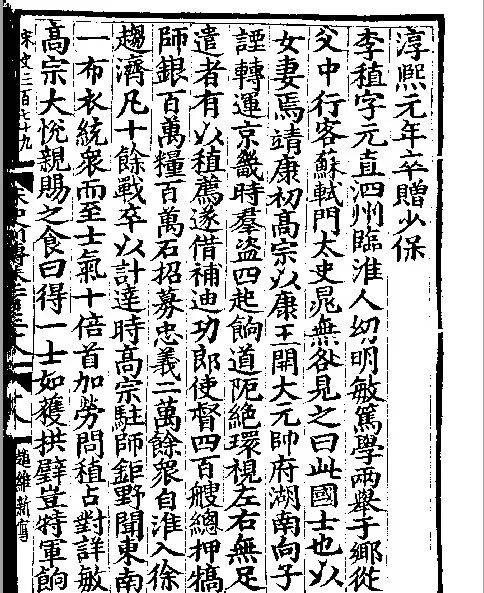 淳熙元年卒贈少保
李稙字元直泗州臨淮人幼明敏篤學兩舉于鄉從
父中行客蘇軾門太史晁無咎見之曰此國士也以
女妻焉靖康初高宗以康王開大元帥府湖南向子
諲轉運京畿時羣盗四起餉道阨絕環視左右無足
遣者有以稙薦遂借補迪功郎使督四百艘總押犒
師銀百萬糧百萬石招募忠義二萬餘衆自淮入徐
趨濟凡十餘戰卒以計達時高宗駐師鉅野聞東南
一布衣統衆而至士氣十倍首加勞問稙占對詳敏
高宗大悅親賜之食曰得一士如獲拱璧豈特軍餉
百七十九
趙維新寫